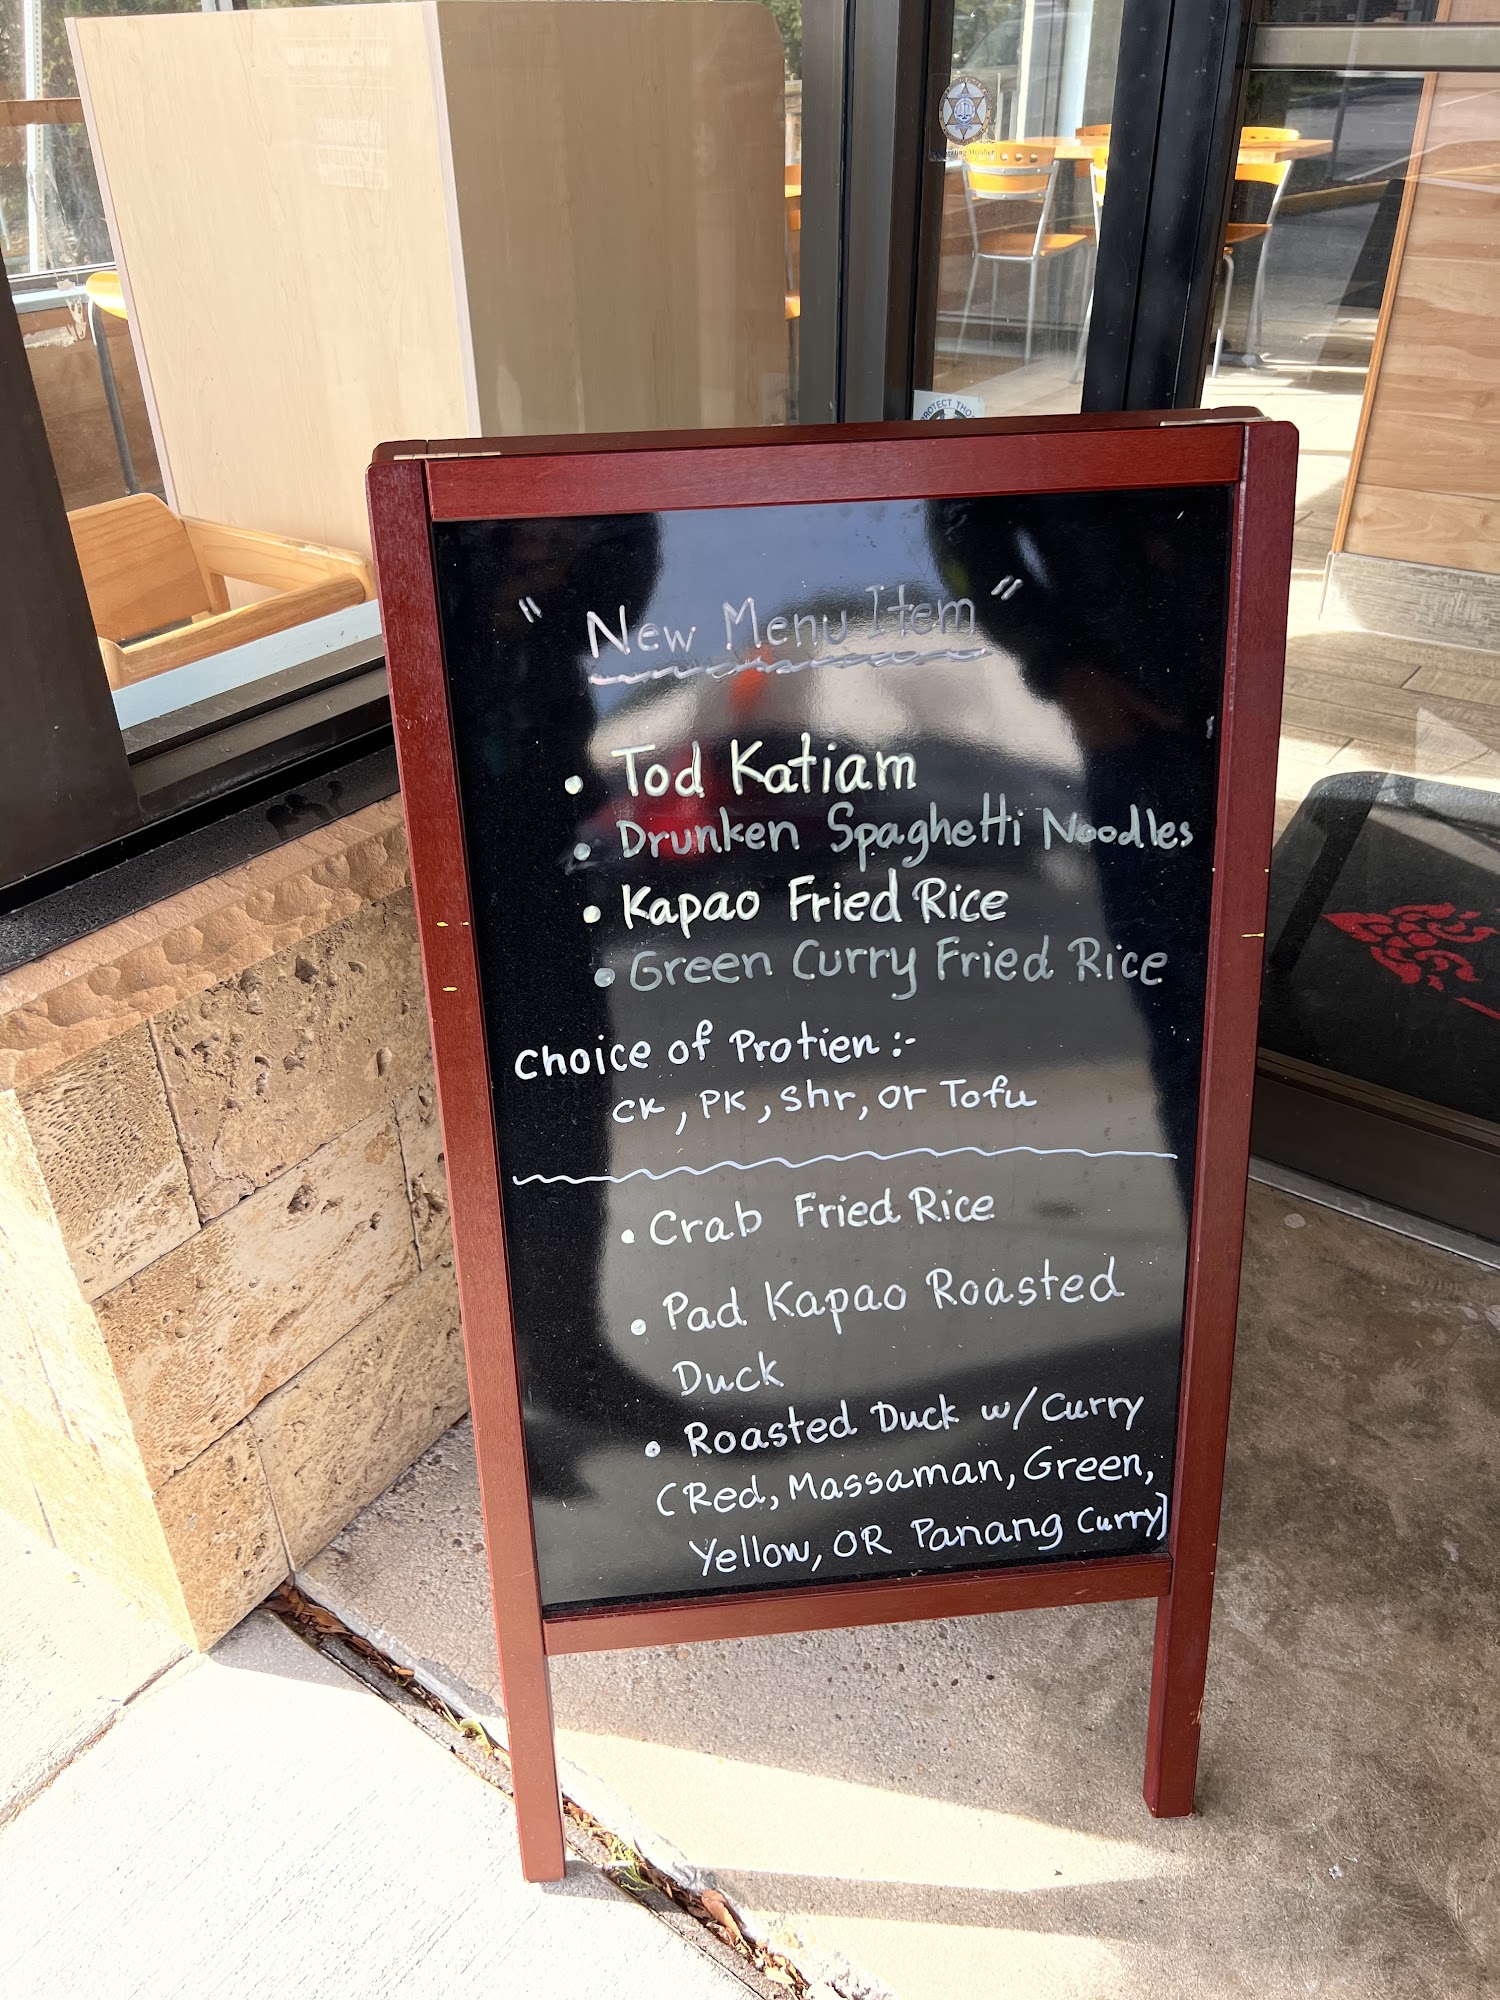 " New Menu Item "
• Tod Katiam
• Drunken Spaghetti Noodles
• Kapao Fried Rice
• Green Curry Fried Rice
Choice of Protien :-
CK, PK, Shr, or Tofu
• Crab Fried Rice
• Pad Kapao Roasted
Duck
• Roasted Duck w/ Curry
(Red, Massaman, Green,
Yellow, OR Panang Curry]
PROTECT THO